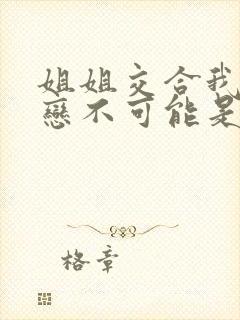 姐姐交合我
戀不可能是
格章